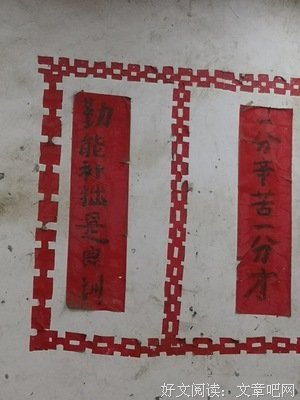 勤能补拙是良训
一分辛苦一分才
好文阅读：文章吧网